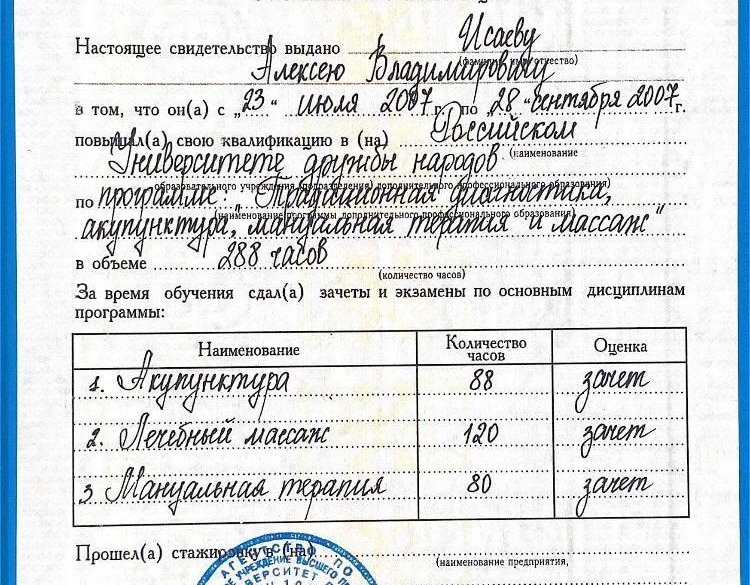 Настоящее свидетельство выдано Исаеву
(фамилия, имя, отчество)
Алексею Владимировичу
в том, что он(а) с „23“ июля 2007 г. по „28“ сентября 2007 г.
повышал(а) свою квалификацию в (на) Российском
(наименование
Университете дружбы народов
образовательного учреждения (подразделения) дополнительного профессионального образования)
по программе: „Традиционная диагностика,
(наименование программы дополнительного профессионального образования)
акупунктура, мануальная терапия и массаж“
в объеме 288 часов
(количество часов)
За время обучения сдал(а) зачеты и экзамены по основным дисциплинам
программы:
Наименование Количество часов Оценка
1. Акупунктура 88 зачет
2. Лечебный массаж 120 зачет
3 Мануальная терапия 80 зачет
Прошел(а) стажировку в (на)
(наименование предприятия,
АГЕНТСТВО ПО
УЧРЕЖДЕНИЕ ВЫСШЕГО